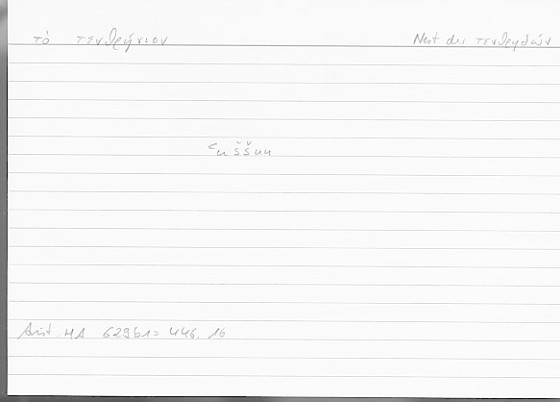 τὸ τενθρήνιον Nest der τενθρηδών
ʿuššun
Arist. HA 629b1= 446.16